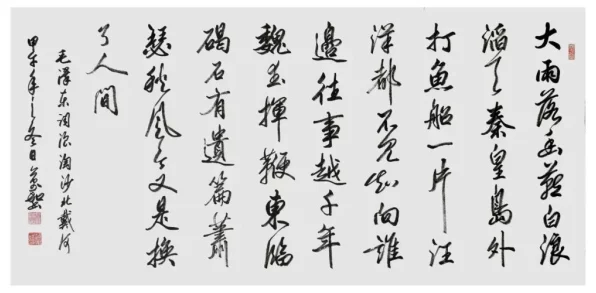 大雨落幽燕白浪
滔天秦皇島外
打魚船一片汪
洋都不見知向誰
邊往事越千年
魏武揮鞭東臨
碣石有遺篇蕭
瑟秋風今又是換
了人間
毛澤東詞浪淘沙北戴河
甲午年之冬日